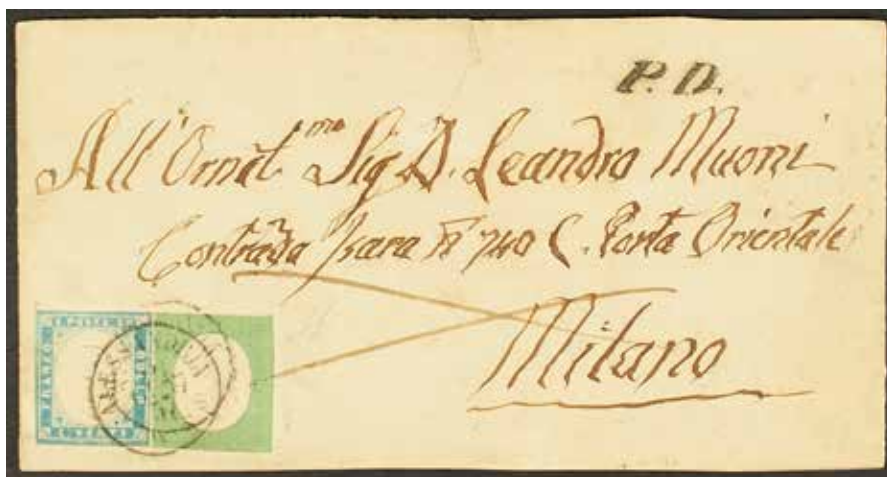 P. D.
All' Ornat.mo Sig D. Leandro Muoni
Contrada Isara n 740 C. Porta Orientale
Milano